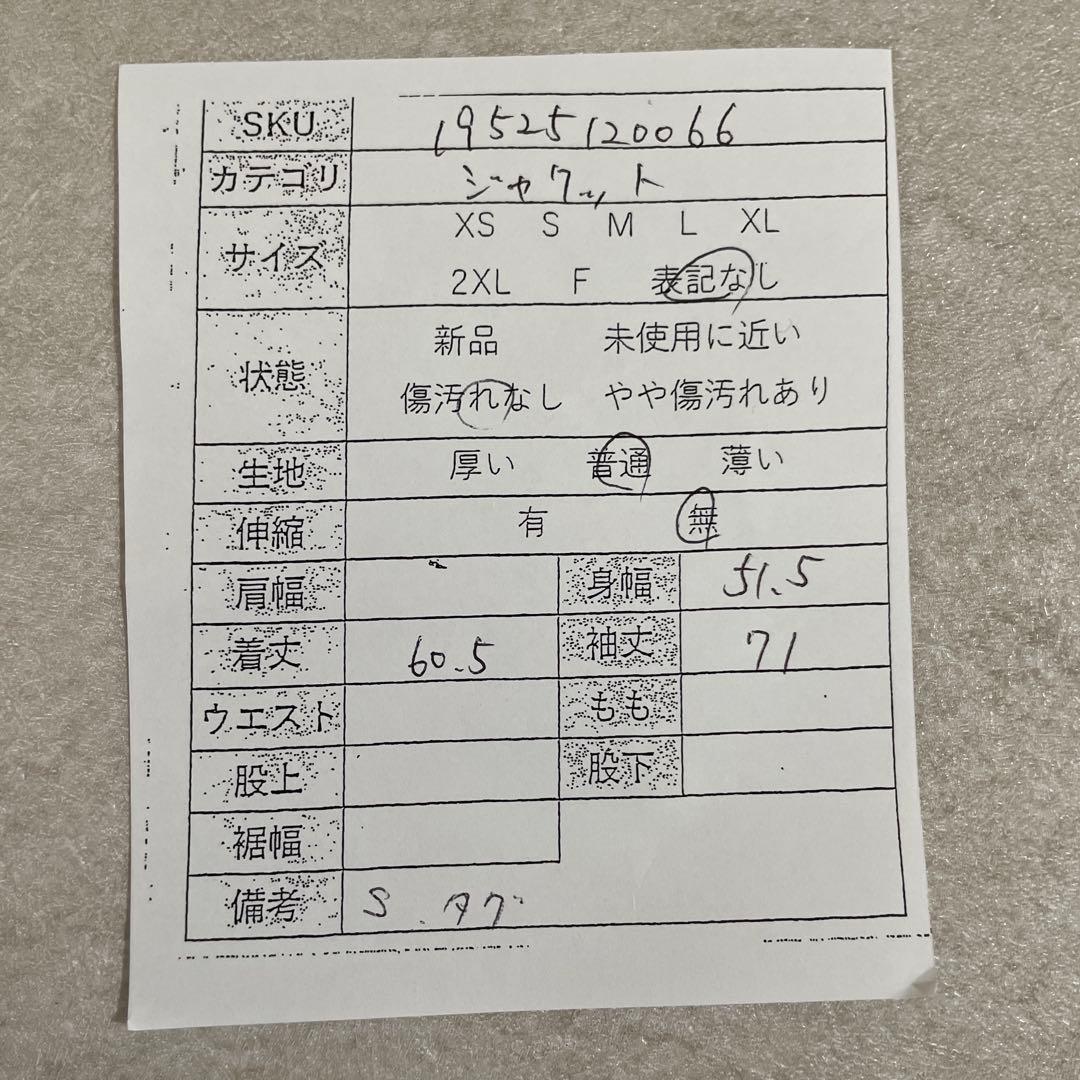 SKU 19525120066
カテゴリ ジャケット
サイズ XS S M L XL
2XL F 表記なし
状態 新品 未使用に近い
傷汚れなし やや傷汚れあり
生地 厚い 普通 薄い
伸縮 有 無
肩幅 身幅 51.5
着丈 60.5 袖丈 71
ウエスト もも
股上 股下
裾幅
備考 S.タグ